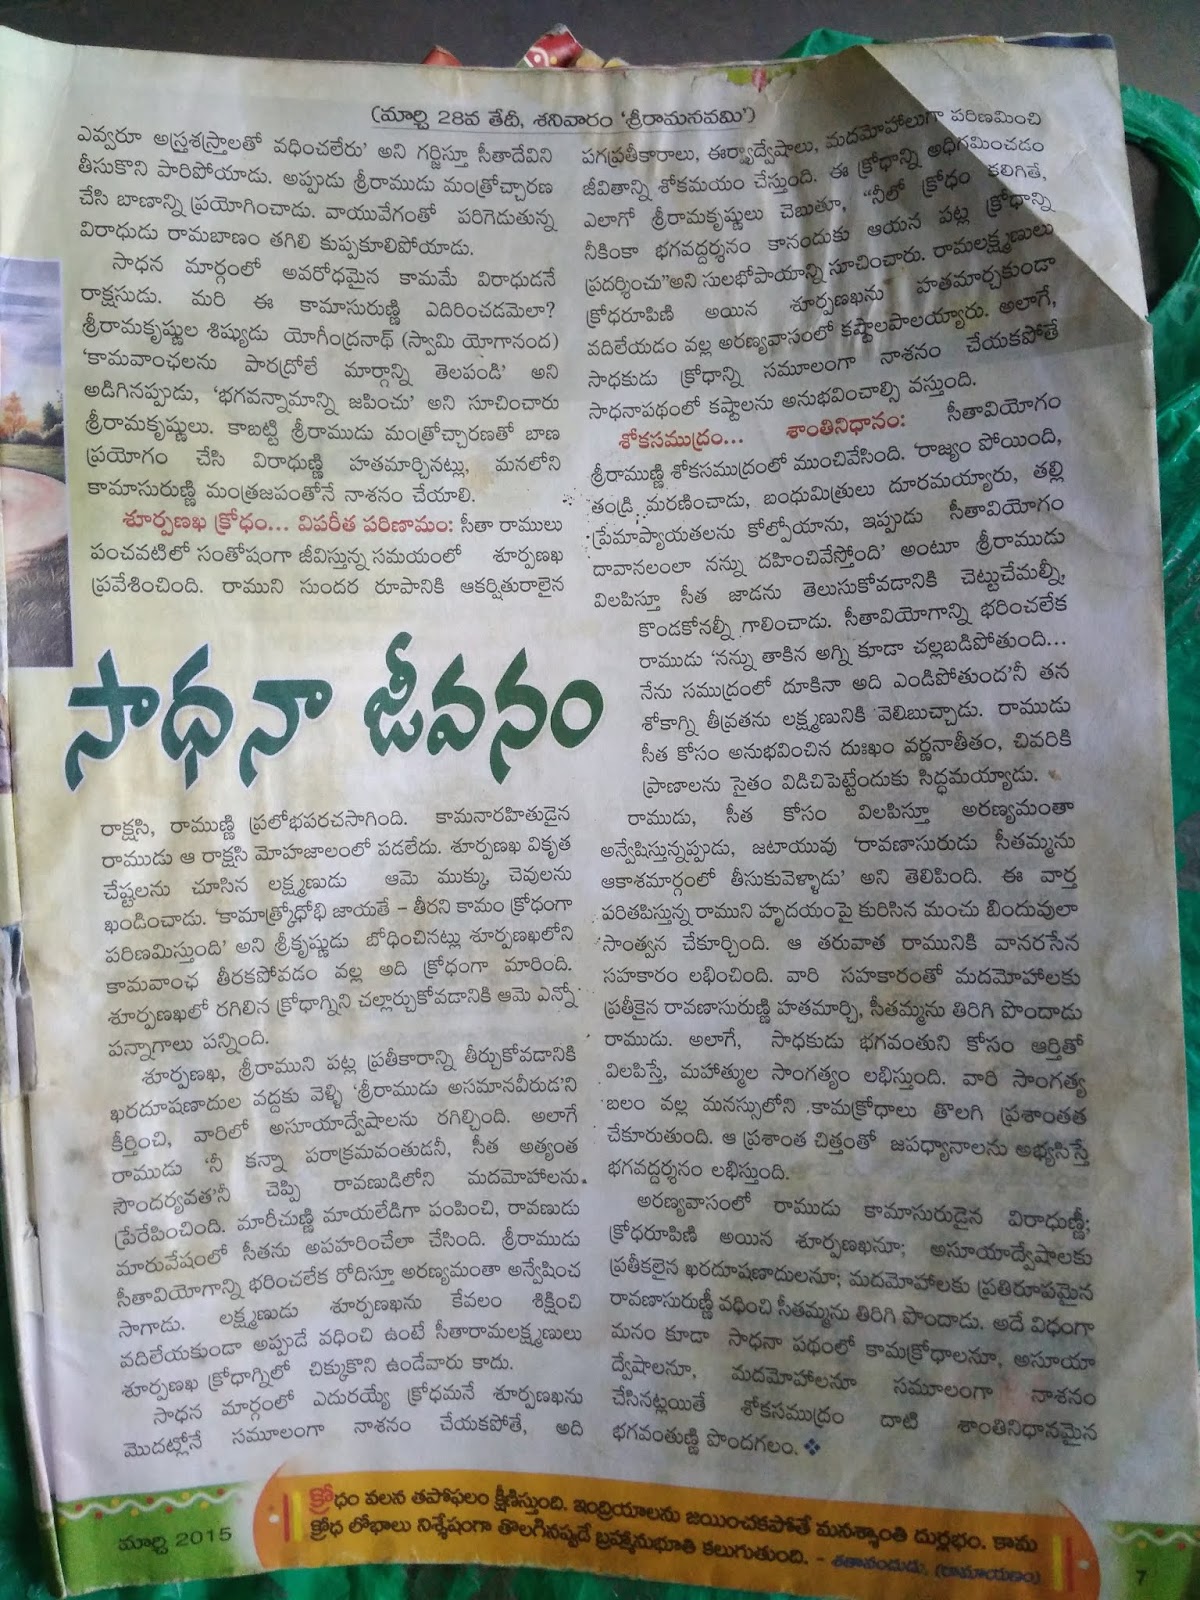 (మార్చి 28వ తేదీ, శనివారం ‘శ్రీరామనవమి’)
ఎవ్వరూ అస్త్రశస్త్రాలతో వధించలేరు’ అని గర్జిస్తూ సీతాదేవిని
తీసుకొని పారిపోయాడు. అప్పుడు శ్రీరాముడు మంత్రోచ్చారణ
చేసి బాణాన్ని ప్రయోగించాడు. వాయువేగంతో పరిగెడుతున్న
విరాధుడు రామబాణం తగిలి కుప్పకూలిపోయాడు.
సాధన మార్గంలో అవరోధమైన కామమే విరాధుడనే
రాక్షసుడు. మరి ఈ కామాసురుణ్ణి ఎదిరించడమెలా?
శ్రీరామకృష్ణుల శిష్యుడు యోగీంద్రనాథ్ (స్వామి యోగానంద)
‘కామవాంఛలను పారద్రోలే మార్గాన్ని తెలపండి’ అని
అడిగినప్పుడు, ‘భగవన్నామాన్ని జపించు’ అని సూచించారు
శ్రీరామకృష్ణులు. కాబట్టి శ్రీరాముడు మంత్రోచ్చారణతో బాణ
ప్రయోగం చేసి విరాధుణ్ణి హతమార్చినట్లు, మనలోని
కామాసురుణ్ణి మంత్రజపంతోనే నాశనం చేయాలి.
శూర్పణఖ క్రోధం... విపరీత పరిణామం: సీతా రాములు
పంచవటిలో సంతోషంగా జీవిస్తున్న సమయంలో శూర్పణఖ
ప్రవేశించింది. రాముని సుందర రూపానికి ఆకర్షితురాలైన
సాధనా జీవనం
రాక్షసి, రాముణ్ణి ప్రలోభపరచసాగింది. కామనారహితుడైన
రాముడు ఆ రాక్షసి మోహజాలంలో పడలేదు. శూర్పణఖ వికృత
చేష్టలను చూసిన లక్ష్మణుడు ఆమె ముక్కు చెవులను
ఖండించాడు. ‘కామాత్క్రోధోభి జాయతే – తీరని కామం క్రోధంగా
పరిణమిస్తుంది’ అని శ్రీకృష్ణుడు బోధించినట్లు శూర్పణఖలోని
కామవాంఛ తీరకపోవడం వల్ల అది క్రోధంగా మారింది.
శూర్పణఖలో రగిలిన క్రోధాగ్నిని చల్లార్చుకోవడానికి ఆమె ఎన్నో
పన్నాగాలు పన్నింది.
శూర్పణఖ, శ్రీరాముని పట్ల ప్రతీకారాన్ని తీర్చుకోవడానికి
ఖరదూషణాదుల వద్దకు వెళ్ళి ‘శ్రీరాముడు అసమానవీరుడ’ని
కీర్తించి, వారిలో అసూయాద్వేషాలను రగిల్చింది. అలాగే
రాముడు ‘నీ కన్నా పరాక్రమవంతుడనీ, సీత అత్యంత
సౌందర్యవతి’నీ చెప్పి రావణుడిలోని మదమోహాలను
ప్రేరేపించింది. మారీచుణ్ణి మాయలేడిగా పంపించి, రావణుడు
మారువేషంలో సీతను అపహరించేలా చేసింది. శ్రీరాముడు
సీతావియోగాన్ని భరించలేక రోదిస్తూ అరణ్యమంతా అన్వేషించ
సాగాడు. లక్ష్మణుడు శూర్పణఖను కేవలం శిక్షించి
వదిలేయకుండా అప్పుడే వధించి ఉంటే సీతారామలక్ష్మణులు
శూర్పణఖ క్రోధాగ్నిలో చిక్కుకొని ఉండేవారు కాదు.
సాధన మార్గంలో ఎదురయ్యే క్రోధమనే శూర్పణఖను
మొదట్లోనే సమూలంగా నాశనం చేయకపోతే, అది
పగప్రతీకారాలు, ఈర్ష్యాద్వేషాలు, మదమోహాలుగా పరిణమించి
జీవితాన్ని శోకమయం చేస్తుంది. ఈ క్రోధాన్ని అధిగమించడం
ఎలాగో శ్రీరామకృష్ణులు చెబుతూ, “నీలో క్రోధం కలిగితే,
నీకింకా భగవద్దర్శనం కానందుకు ఆయన పట్ల క్రోధాన్ని
ప్రదర్శించు”అని సులభోపాయాన్ని సూచించారు. రామలక్ష్మణులు
క్రోధరూపిణి అయిన శూర్పణఖను హతమార్చకుండా
వదిలేయడం వల్ల అరణ్యవాసంలో కష్టాలపాలయ్యారు. అలాగే,
సాధకుడు క్రోధాన్ని సమూలంగా నాశనం చేయకపోతే
సాధనాపథంలో కష్టాలను అనుభవించాల్సి వస్తుంది.
శోకసముద్రం... శాంతినిధానం: సీతావియోగం
శ్రీరాముణ్ణి శోకసముద్రంలో ముంచివేసింది. ‘రాజ్యం పోయింది,
తండ్రి మరణించాడు, బంధుమిత్రులు దూరమయ్యారు, తల్లి
ప్రేమాప్యాయతలను కోల్పోయాను, ఇప్పుడు సీతావియోగం
దావానలంలా నన్ను దహించివేస్తోంది’ అంటూ శ్రీరాముడు
విలపిస్తూ సీత జాడను తెలుసుకోవడానికి చెట్టుచేమల్నీ,
కొండకోనల్నీ గాలించాడు. సీతావియోగాన్ని భరించలేక
రాముడు ‘నన్ను తాకిన అగ్ని కూడా చల్లబడిపోతుంది...
నేను సముద్రంలో దూకినా అది ఎండిపోతుంద’నీ తన
శోకాగ్ని తీవ్రతను లక్ష్మణునికి వెలిబుచ్చాడు. రాముడు
సీత కోసం అనుభవించిన దుఃఖం వర్ణనాతీతం, చివరికి
ప్రాణాలను సైతం విడిచిపెట్టేందుకు సిద్ధమయ్యాడు.
రాముడు, సీత కోసం విలపిస్తూ అరణ్యమంతా
అన్వేషిస్తున్నప్పుడు, జటాయువు ‘రావణాసురుడు సీతమ్మను
ఆకాశమార్గంలో తీసుకువెళ్ళాడు’ అని తెలిపింది. ఈ వార్త
పరితపిస్తున్న రాముని హృదయంపై కురిసిన మంచు బిందువులా
సాంత్వన చేకూర్చింది. ఆ తరువాత రామునికి వానరసేన
సహకారం లభించింది. వారి సహకారంతో మదమోహాలకు
ప్రతీకైన రావణాసురుణ్ణి హతమార్చి, సీతమ్మను తిరిగి పొందాడు
రాముడు. అలాగే, సాధకుడు భగవంతుని కోసం ఆర్తితో
విలపిస్తే, మహాత్ముల సాంగత్యం లభిస్తుంది. వారి సాంగత్య
బలం వల్ల మనస్సులోని కామక్రోధాలు తొలగి ప్రశాంతత
చేకూరుతుంది. ఆ ప్రశాంత చిత్తంతో జపధ్యానాలను అభ్యసిస్తే
భగవద్దర్శనం లభిస్తుంది.
అరణ్యవాసంలో రాముడు కామాసురుడైన విరాధుణ్ణీ;
క్రోధరూపిణి అయిన శూర్పణఖనూ; అసూయాద్వేషాలకు
ప్రతీకలైన ఖరదూషణాదులనూ; మదమోహాలకు ప్రతిరూపమైన
రావణాసురుణ్ణీ వధించి సీతమ్మను తిరిగి పొందాడు. అదే విధంగా
మనం కూడా సాధనా పథంలో కామక్రోధాలనూ, అసూయా
ద్వేషాలనూ, మదమోహాలనూ సమూలంగా నాశనం
చేసినట్లయితే శోకసముద్రం దాటి శాంతినిధానమైన
భగవంతుణ్ణి పొందగలం.
క్రోధం వలన తపోఫలం క్షీణిస్తుంది. ఇంద్రియాలను జయించకపోతే మనశ్శాంతి దుర్లభం. కామ
క్రోధ లోభాలు నిశ్శేషంగా తొలగినప్పుడే బ్రహ్మానుభూతి కలుగుతుంది. – శతానందుడు, (రామాయణం)
మార్చి 2015
7